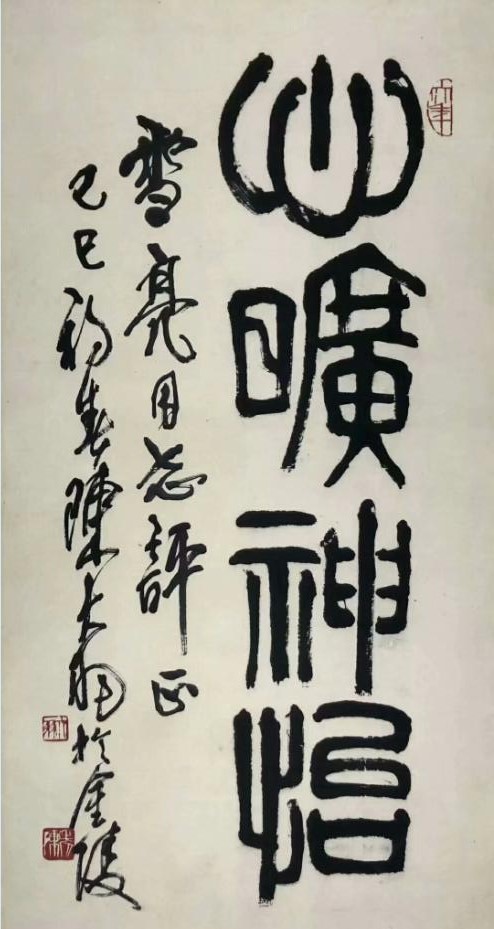 心曠神怡
雪亮同志評正
己巳初春陳大羽於金陵